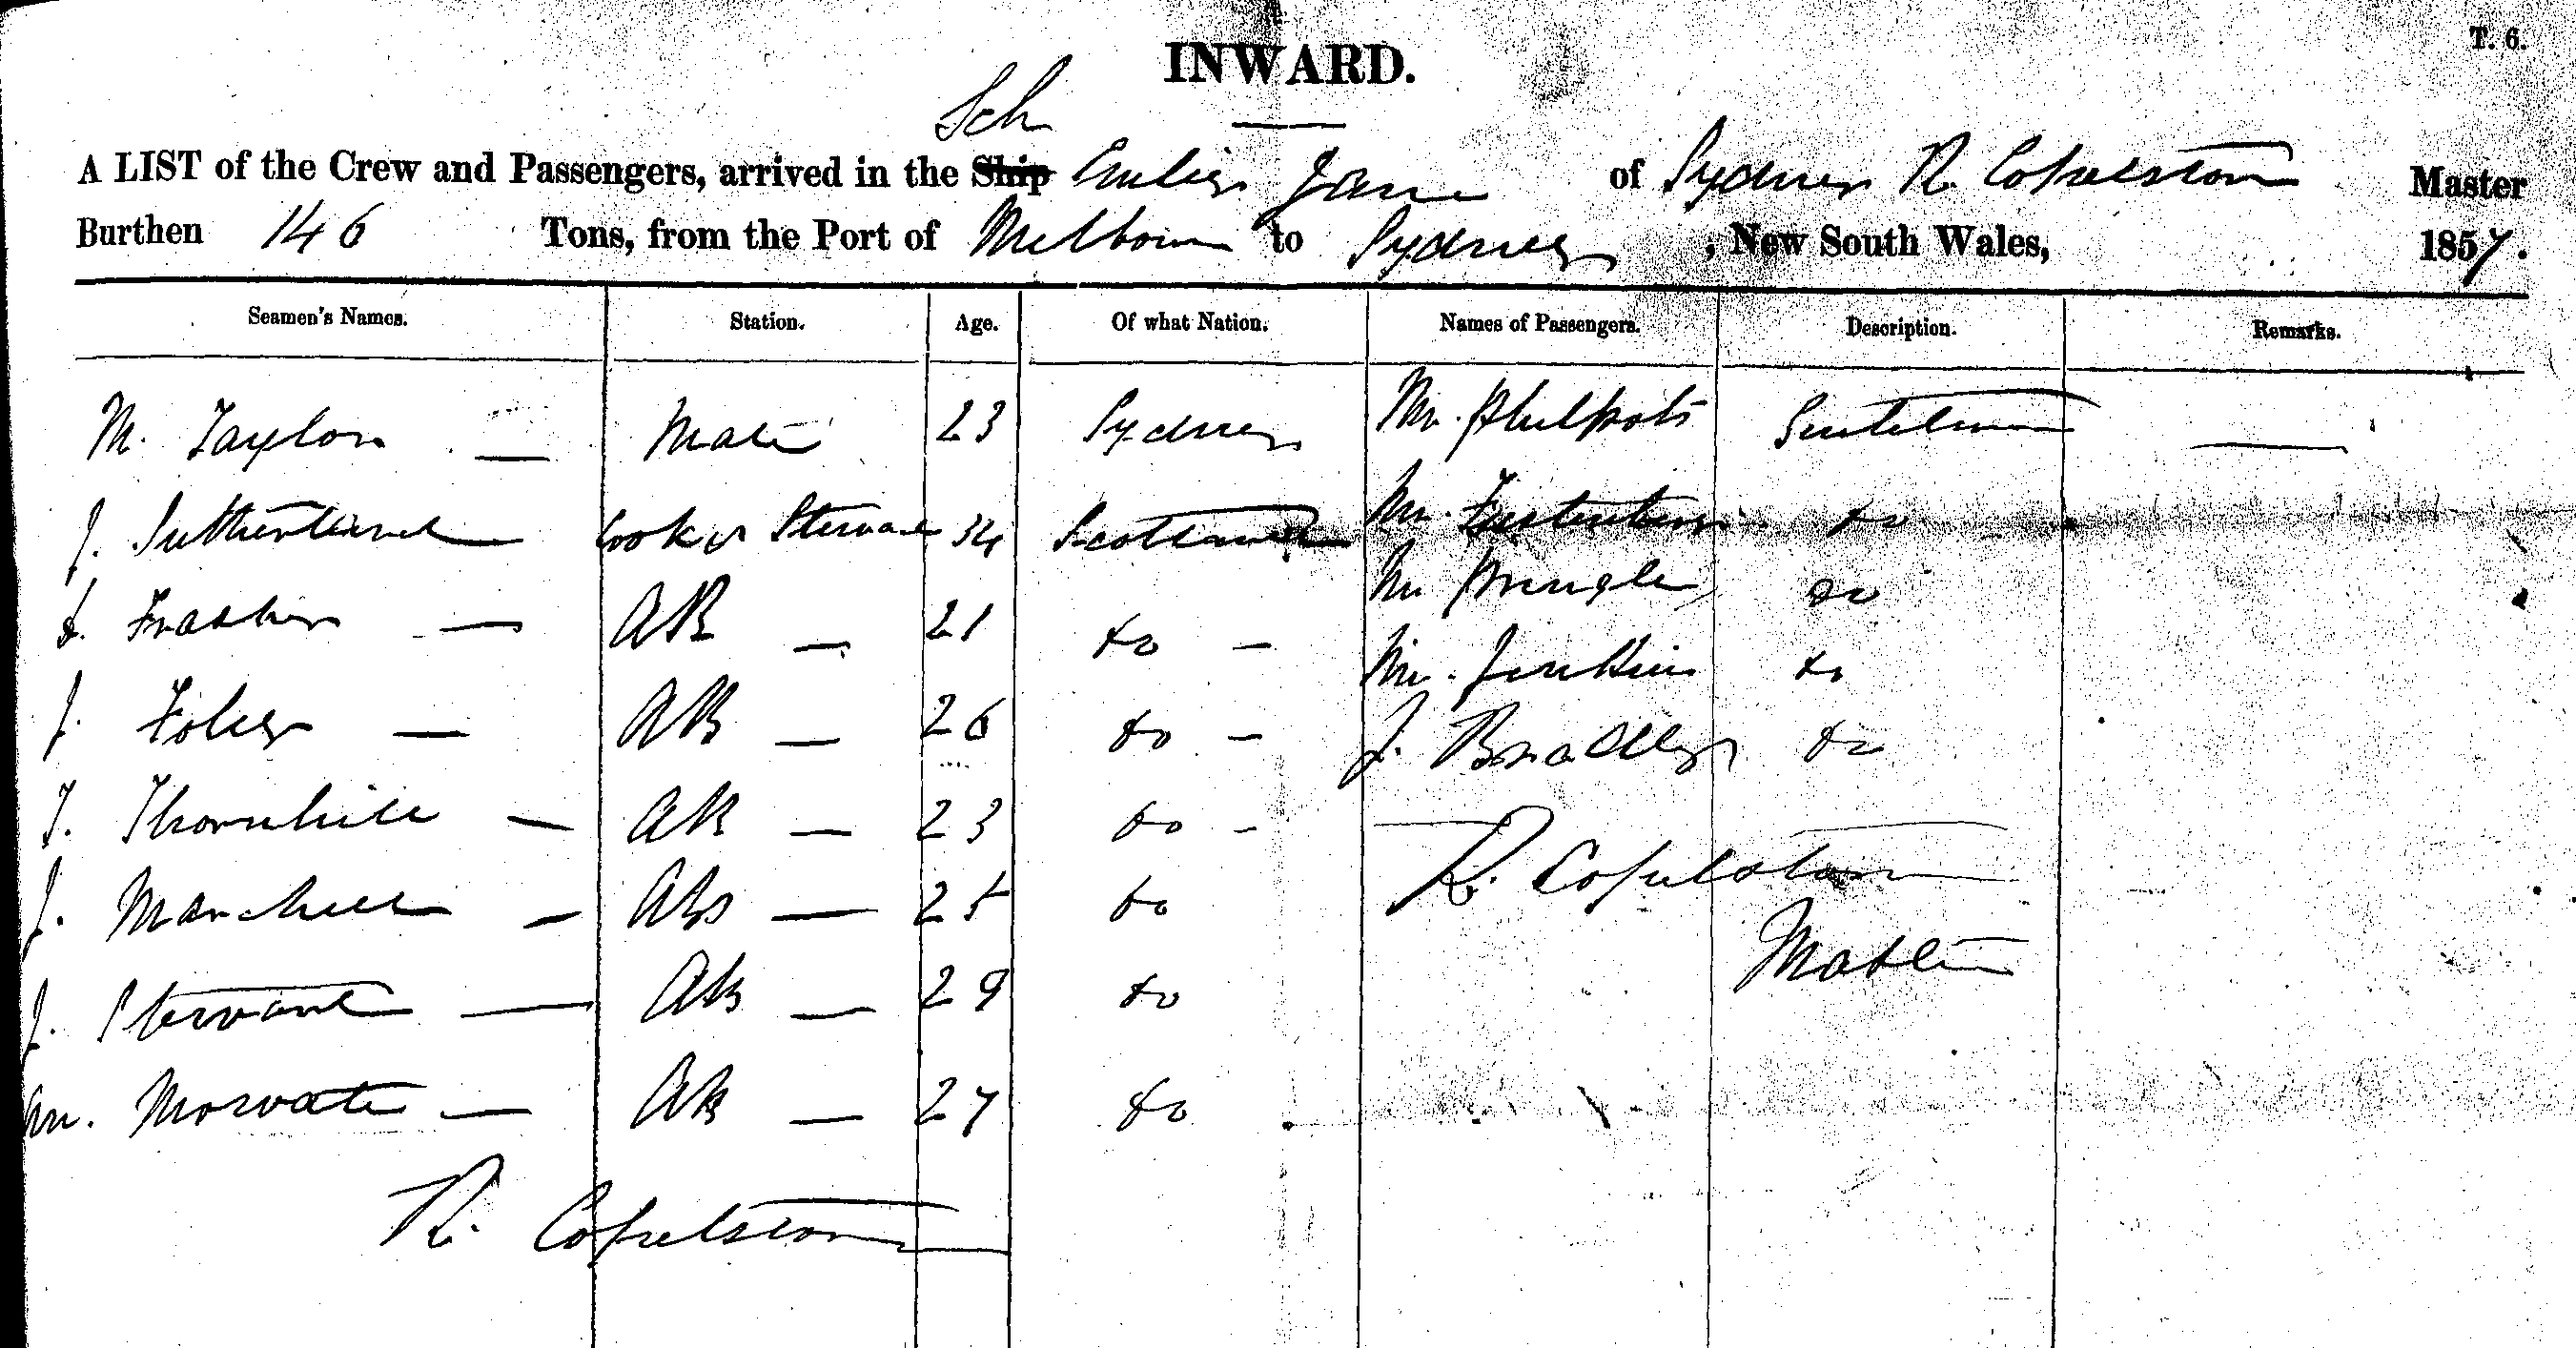 T. 6.
INWARD.
Sch
A LIST of the Crew and Passengers, arrived in the Ship Emily Jane of Sydney R. Copelston Master
Burthen 146 Tons, from the Port of Melbourn to Sydney, New South Wales, 1857.
Seamen's Names. Station. Age. Of what Nation. Names of Passengers. Description. Remarks.
M. Taylor — Mate 23 Sydney Mr. Philpots Gentleman —
J. Sutherland Cook & Steward 34 Scotland Mr. do
Frasher — AB — 21 do — Mr Pringle do
J. Foley — AB — 26 do — Mr. Jenkins do
T. Thornhill — AB — 23 do — J. Bradley do
J. — AB — 25 do R. Copelston
J. Stewart — AB — 29 do Master
Wm. — AB — 27 do
R. Copelston